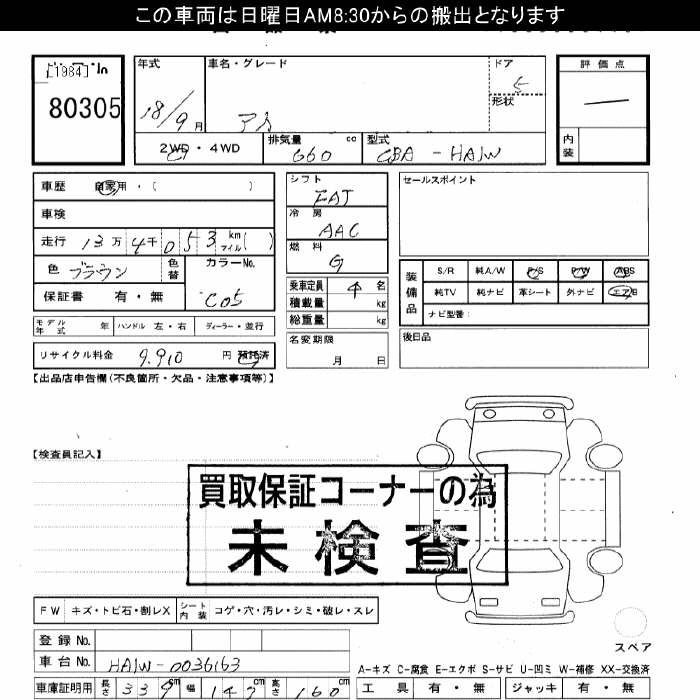 この車両は日曜日AM8:30からの搬出となります
[1984]
80305
年式 車名・グレード ドア 評価点
18/9月 アイ 5
形状
排気量 cc 型式 内装
2WD・4WD 660 CBA - HA1W
車歴 自家用・( )
車検
走行 13万 4千 053 km マイル( )
色 ブラウン 色替 カラーNo.
保証書 有・無 C05
モデル年式 年 ハンドル 左・右 ディーラー・並行
リサイクル料金 9,910 円 預託済
シフト FAT
冷房 AAC
燃料 G
乗車定員 4 名
積載量 kg
総重量 kg
名変期限
月 日
セールスポイント
装備品 S/R 純A/W P/S P/W ABS
純TV 純ナビ 革シート 外ナビ エアB
ナビ型番:
後日品
【出品店申告欄(不良箇所・欠品・注意事項等)】
【検査員記入】
買取保証コーナーの為
未検査
FW キズ・トビ石・割レX シート内装 コゲ・穴・汚レ・シミ・破レ・スレ
登録No.
車台No. HA1W-0036163
スペア
A-キズ C-腐食 E-エクボ S-サビ U-凹ミ W-補修 XX-交換済
車庫証明用 長さ 339cm 幅 147cm 高さ 160cm 工具 有・無 ジャッキ 有・無